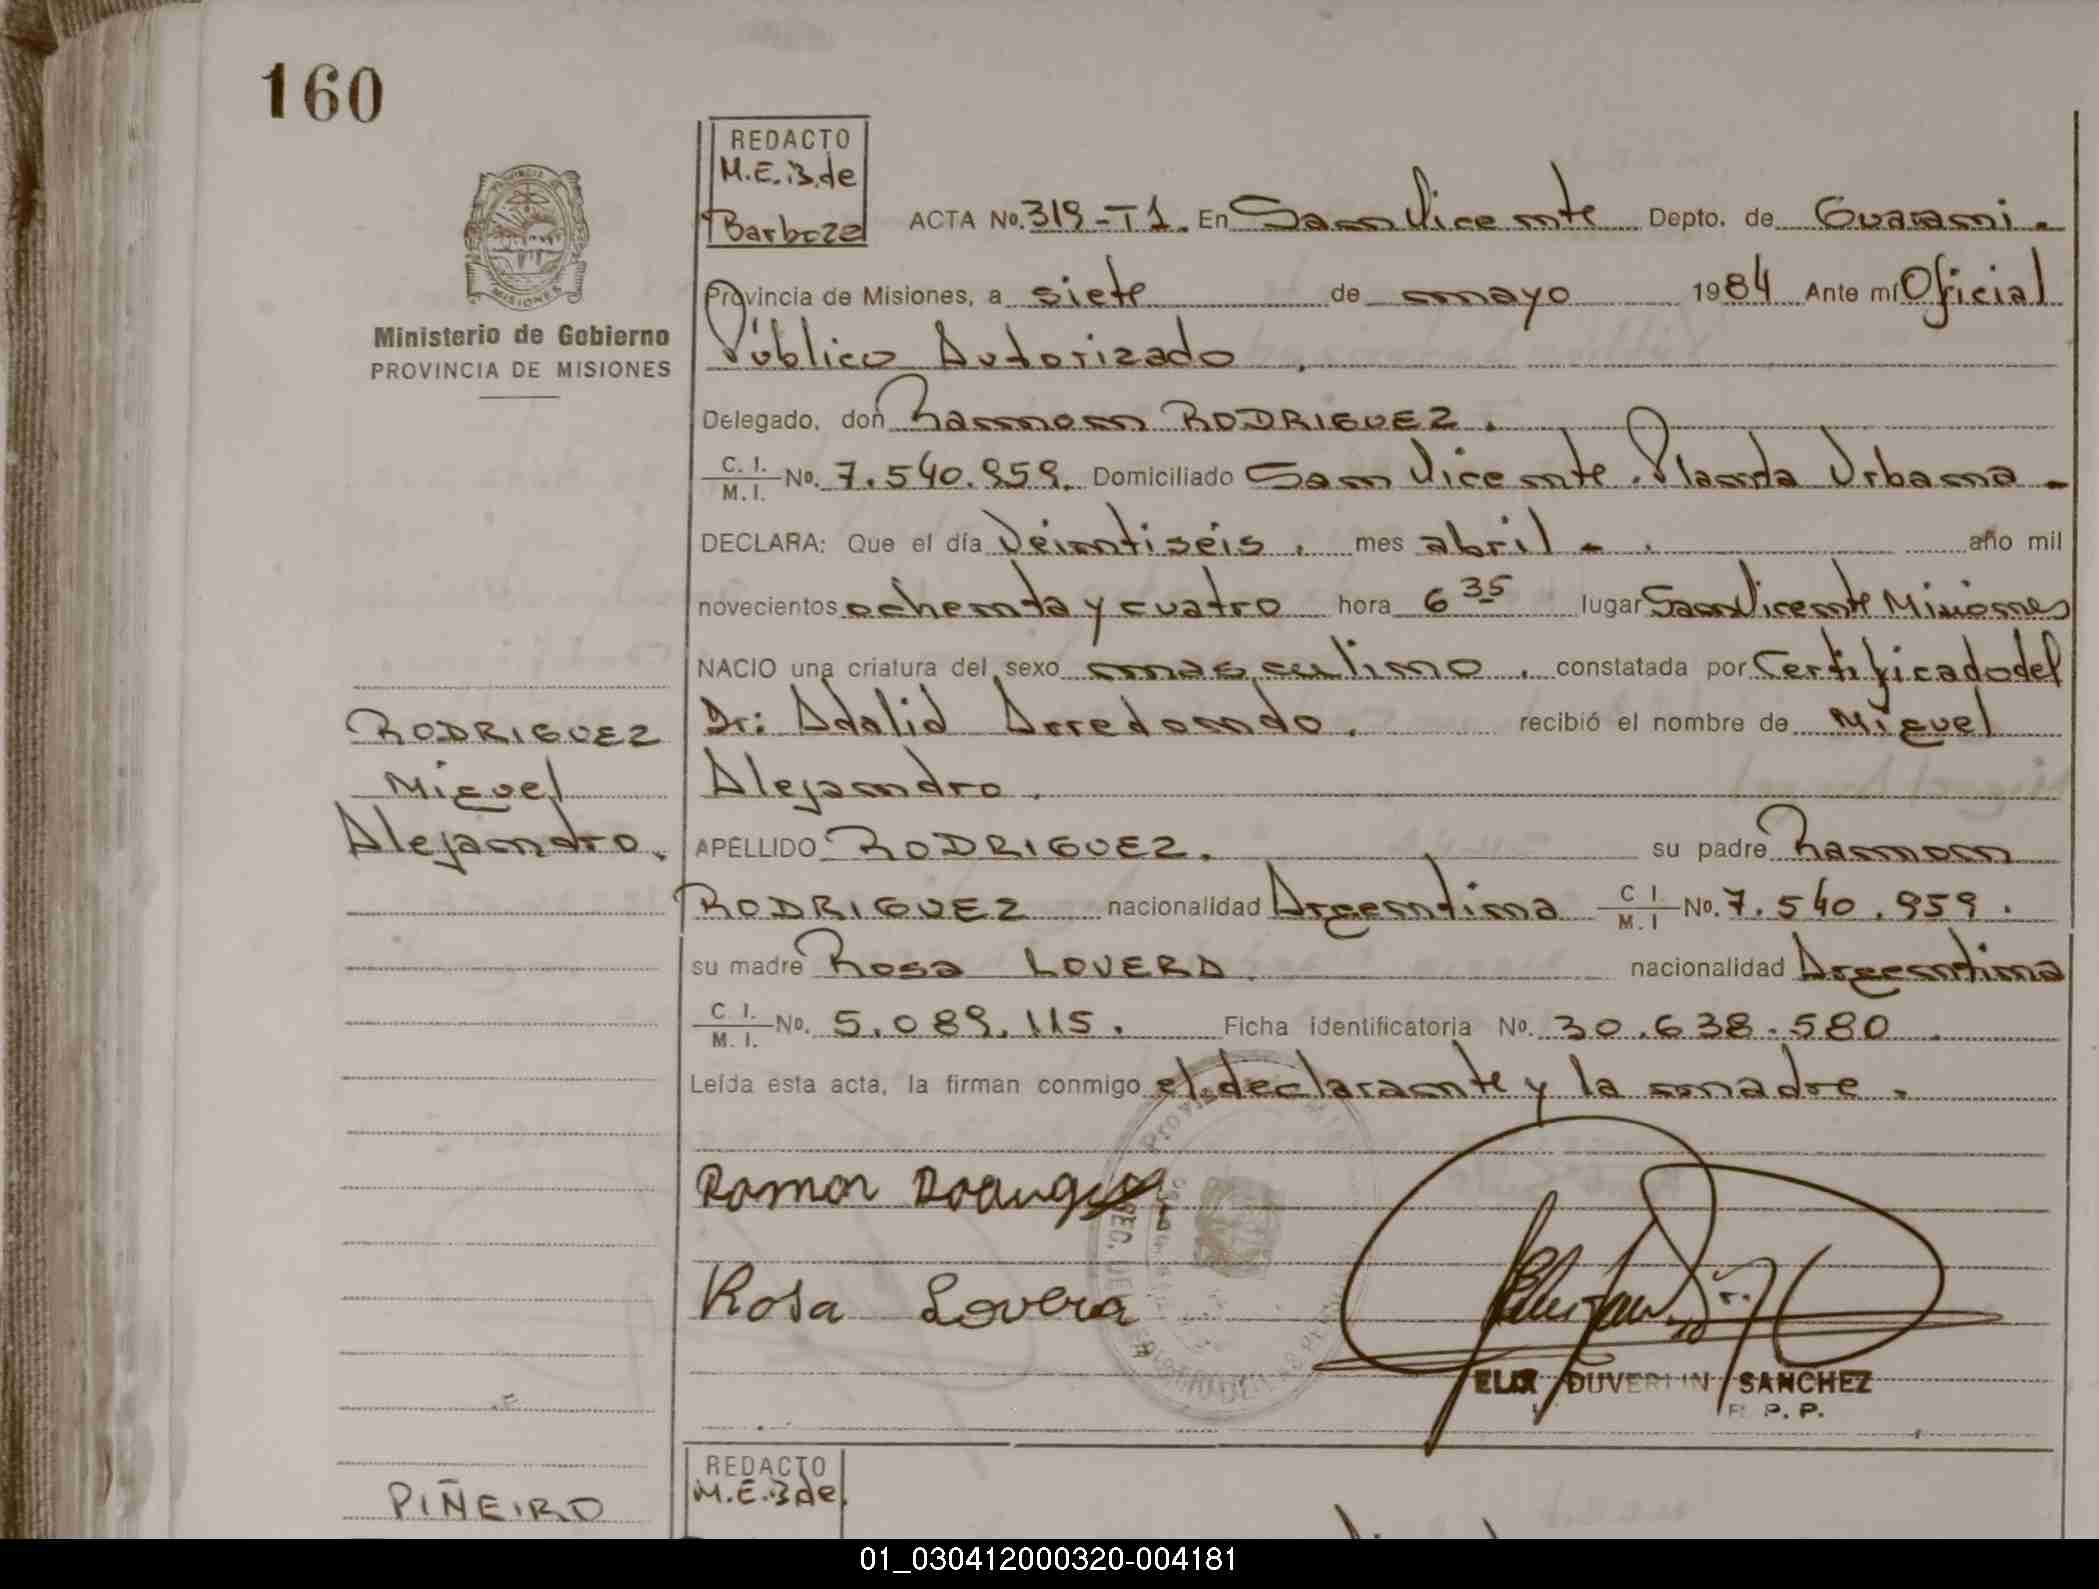 160
REDACTO
M.E.B. de
Barboza
PROVINCIA DE
MISIONES
Ministerio de Gobierno
PROVINCIA DE MISIONES
ACTA No. 319-T1. En San Vicente Depto. de Guarani.
Provincia de Misiones, a siete de mayo 1984 Ante mí Oficial
Público Autorizado
Delegado, don Ramon RODRIGUEZ.
C. I. / M. I. No. 7.540.959. Domiciliado San Vicente. Planta Urbana -
DECLARA: Que el día Veintiséis. mes abril - año mil
novecientos ochenta y cuatro hora 6 35 lugar San Vicente Misiones
NACIO una criatura del sexo masculino. constatada por Certificado del
Dr: Adalid Arredondo. recibió el nombre de Miguel
Alejandro.
APELLIDO RODRIGUEZ. su padre Ramon
RODRIGUEZ nacionalidad Argentina C I. / M. I No. 7.540.959.
su madre Rosa LOVERA nacionalidad Argentina
C. I. / M. I. No. 5.089.115. Ficha identificatoria No. 30.638.580.
Leída esta acta, la firman conmigo el declarante y la madre.
RODRIGUEZ
Miguel
Alejandro.
Ramon
Rosa Lovera
SANCHEZ
P. P.
REDACTO
M.E.B de
PIÑEIRO
01_030412000320-004181